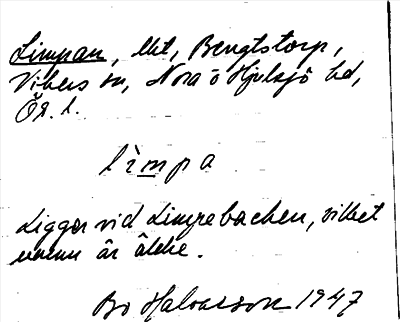 Limpan, lht, Bengtstorp,
Vikers sn, Nora o Hjulsjö bd,
Ör. l.
lìmpa
Ligger vid Limpebacken, vilket
namn är äldre.
Bo Halvarsson 1947